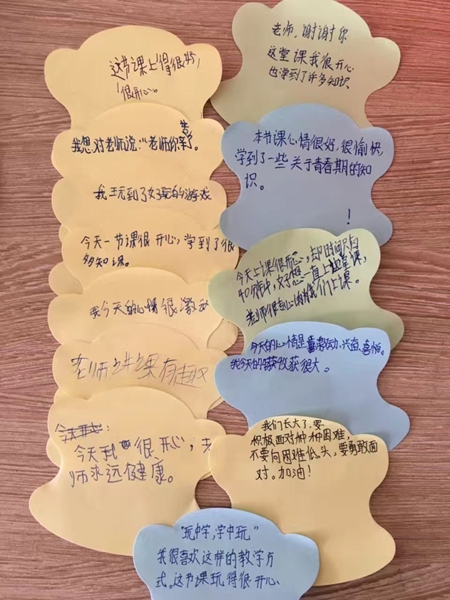 这节课上得很好,
很开心。
我想对老师说:“老师你辛苦了。
我玩到了好玩的游戏
今天一节课很开心,学到了很
多知识。
我今天的心情很激动
老师讲课有趣
今天我很开心,老
师永远健康。
老师,谢谢你
这堂课我很开心
也学到了许多知识。
本节课心情很好,很愉快,
学到了一些关于青春期的知
识。
!
今天上课很开心,
40分钟,好想一直上这堂课,
老师很耐心的给我们上课。
今天的心情是激动,兴奋,喜悦。
我今天的收获很大。
我们长大了,要
积极面对种种困难,
不要向困难低头,要勇敢面
对。加油!
“玩中学,学中玩”
我很喜欢这样的教学方
式。这节课玩得很开心.